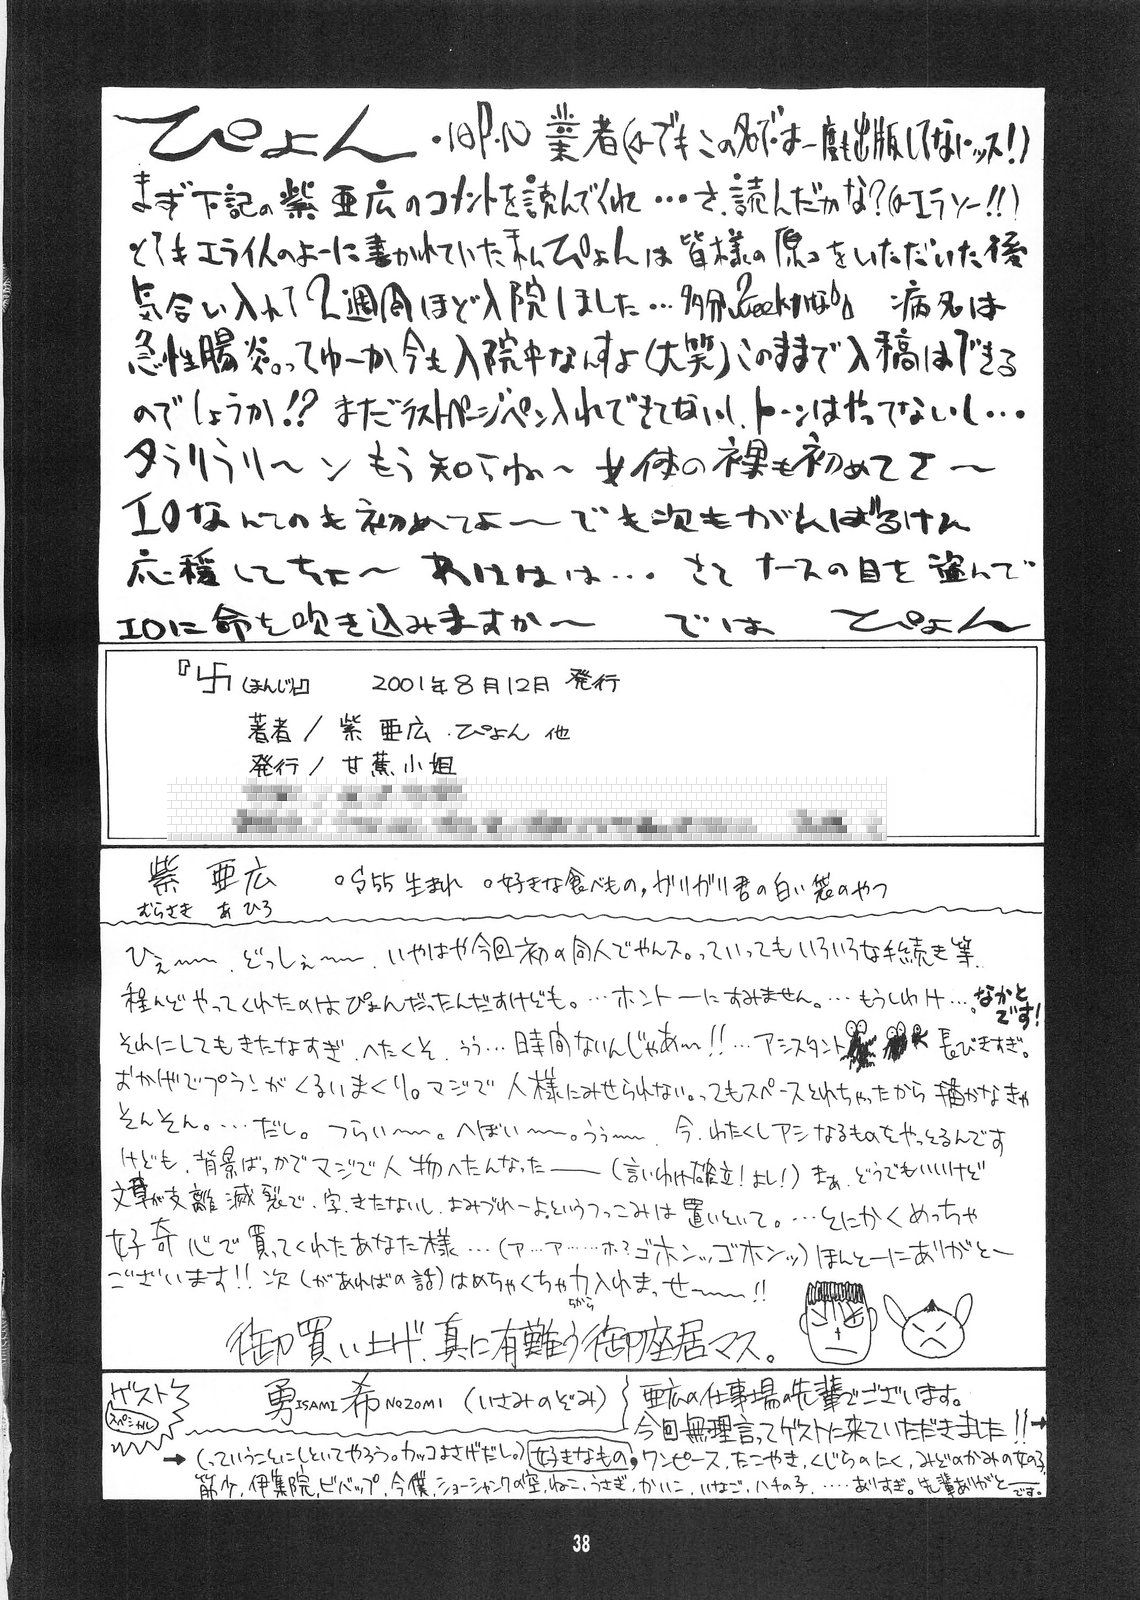 ぴょん 業者(←でもこの名では一度も出版してないッス!)
まず下記の紫亜広のコメントを読んでくれ…さ、読んだかな?(←エラソー!!)
とてもエライ人のよーに書かれていた私ぴょんは皆様の原コをいただいた後
気合い入れて2週間ほど入院しました…多分 病名は
急性腸炎。ってゆーか今も入院中なんすよ(大笑)このままで入稿はできる
のでしょうか!? まだラストページペン入れできてないし、トーンはやってないし…
タラリラリ〜ン もう知らね〜 女体の裸も初めてさ〜
エロなんてのも初めてよ〜 でも次もがんばるけん
応援してちょ〜 あははは… さて ナースの目を盗んで
エロに命を吹き込みますか〜 では ぴょん
『卐(まんじ)』 2001年8月12日 発行
著者/紫 亜広・ぴょん 他
発行/甘蕉小姐
紫 亜広 ○S55生まれ ○好きな食べもの,ガリガリ君の白い袋のやつ
むらさき あひろ
ひぇ〜〜、どっしぇ〜〜、いやはや今回初の同人でやんス。っていってもいろいろな手続き等
殆んどやってくれたのはぴょんだったんだすけども。…ホントーにすみません。…もうしわけ…なかとです!
それにしてもきたなすぎ、へたくそ、うう…時間ないんじゃあ〜!!…アシスタント 長びきすぎ。
おかげでプランがくるいまくり。マジで人様にみせられない。ってもスペースとれちゃったから描かなきゃ
そんそん。…だし。つらい〜〜。へぼい〜〜。うぅ〜〜、今、わたくしアシなるものをやっとるんです
けども、背景ばっかでマジで人物へたんなった――(言いわけ確立!よし!)まぁ、どうでもいいけど
文章が支離滅裂で、字、きたないし、よみづれーよ。というつっこみは置いといて。…とにかくめっちゃ
好奇心で買ってくれたあなた様…(ア…ア……ホ?ゴホンッッゴホンッ)ほんとーにありがとー
ございます!!次(があればの話)はめちゃくちゃ力入れまっせ〜〜!!
ちから
御買い上げ、真に有難う御座居マス。
ゲスト
スペシャル
勇ISAMI 希NOZOMI (いさみのぞみ)
亜広の仕事場の先輩でございます。
今回無理言ってゲストに来ていただきました!!→
→(っていうことにしといてやろう。カッコよさげだし。)好きなもの,ワンピース、たこやき、くじらのにく、みどりのかみの女の子、
筋少、伊集院、ビバップ、今僕、ショーシャンクの空、ねこ、うさぎ、かいこ、いなご、ハチの子、……ありすぎ。先輩ありがとーです。
38